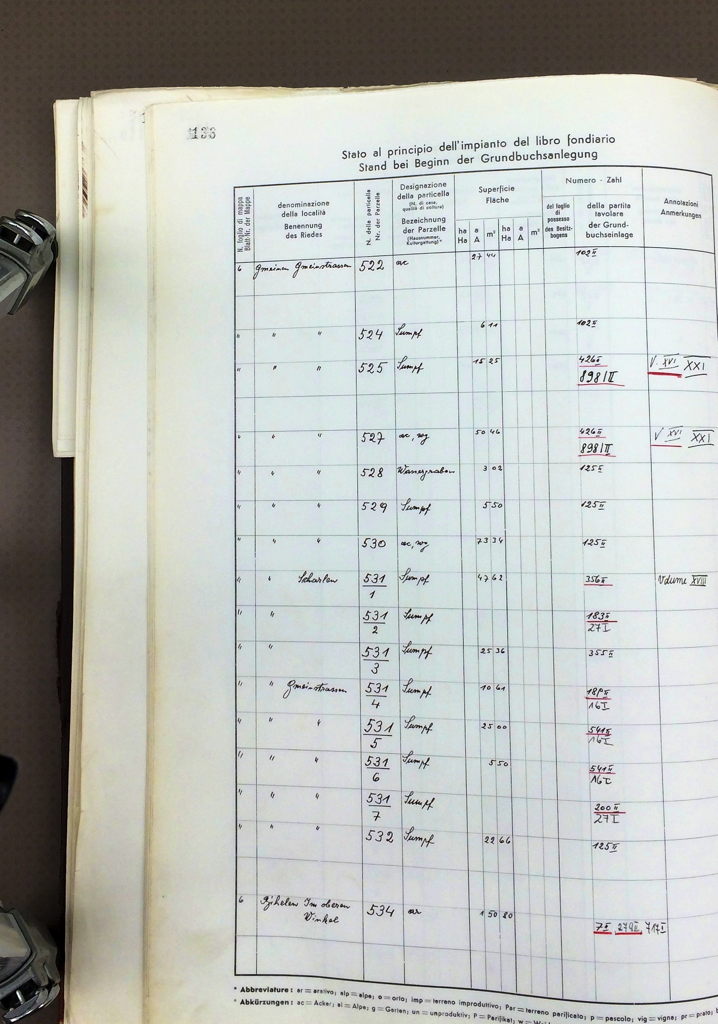 133
Stato al principio dell'impianto del libro fondiario
Stand bei Beginn der Grundbuchsanlegung
N. foglio di mappa
Blatt-Nr. der Mappe
denominazione della località
Benennung des Riedes
N. della particella
Nr. der Parzelle
Designazione della particella
(N. di casa, qualità di coltura)
Bezeichnung der Parzelle
(Hausnummer, Kulturgattung)*
Superficie
Fläche
ha Ha a A m² ha Ha a A m²
Numero - Zahl
del foglio di possesso
des Besitz-bogens
della partita tavolare
der Grund-buchseinlage
Annotazioni
Anmerkungen
6 Gmeinen Gmeinstrassen 522 ac 27 44 102 II
" " " 524 Sumpf 6 11 102 II
" " " 525 Sumpf 15 25 426 II V XVI XXI
898/II
" " " 527 ac, wg 50 46 426 II V XVI XXI
898/II
" " " 528 Wassergraben 3 02 125 II
" " " 529 Sumpf 5 50 125 II
" " " 530 ac, wg 73 34 125 II
" " Scharlen 531/1 Sumpf 47 62 356 II Volume XVIII
" " 531/2 Sumpf 183 II
27 I
" " 531/3 Sumpf 25 36 355 II
" " Gmeinstrassen 531/4 Sumpf 10 61
16 I
" " " 531/5 Sumpf 25 00 541 II
16 I
" " " 531/6 Sumpf 5 50 541 II
16 I
" " " 531/7 Sumpf 200 II
27 I
" " " 532 Sumpf 22 66 125 II
6 Im oberen Winkel 534 ar 1 50 80
* Abbreviature: ar = arativo, alp = alpe, o = orto; imp = terreno improduttivo; Par = terreno parificato; p = pascolo; vig = vigna; pr = prato;
* Abkürzungen: ac = Acker; al = Alpe; g = Garten; un = unproduktiv; P = Parifikat;